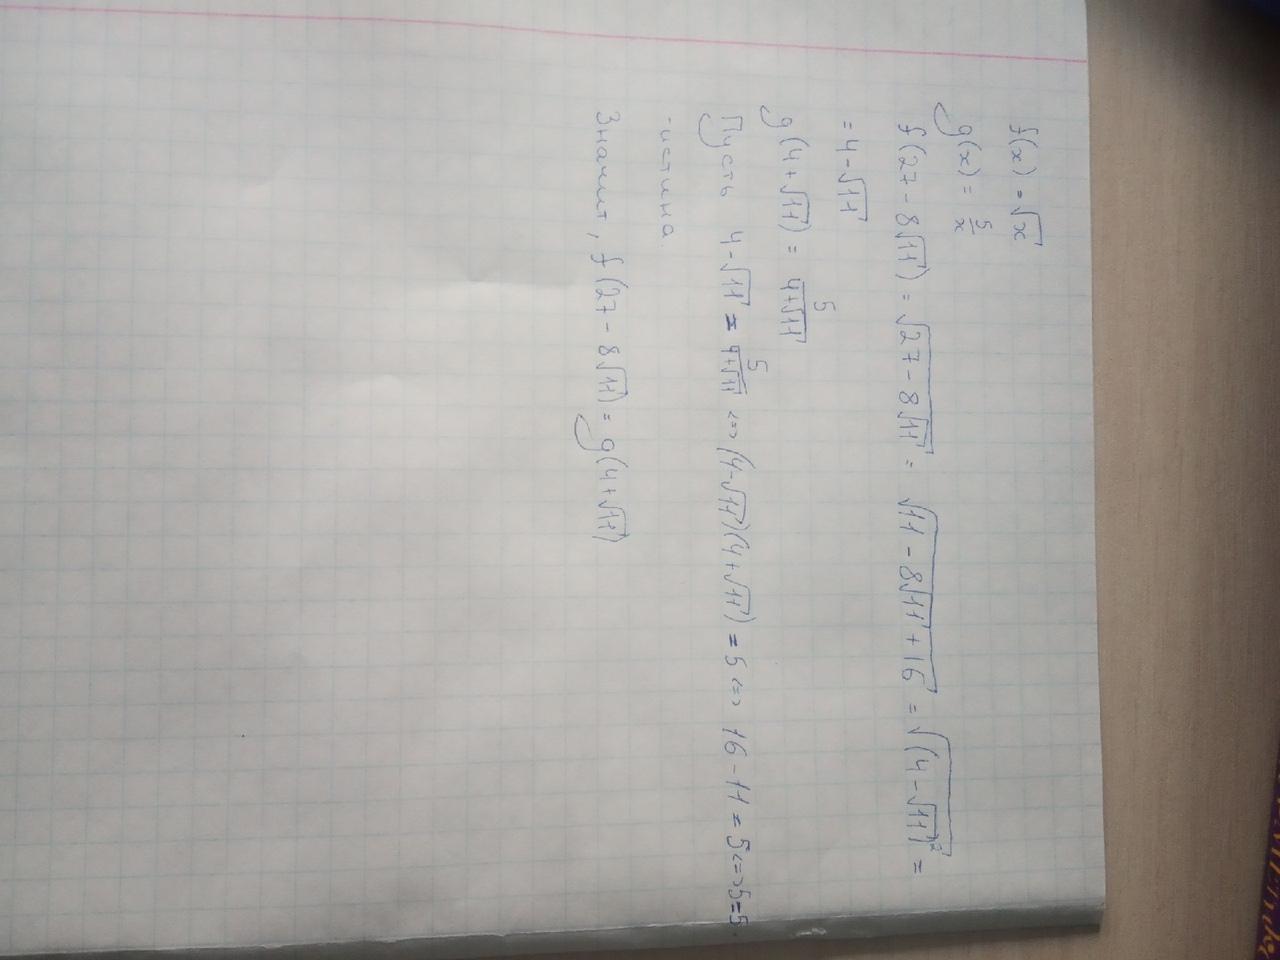 f(x) = √x
g(x) = 5/x
f(27 - 8√11) = √(27 - 8√11) = √(11 - 8√11 + 16) = √((4 - √11)²) =
= 4 - √11
g(4 + √11) = 5/(4+√11)
Пусть 4 - √11 = 5/(4+√11) <=> (4 - √11)(4 + √11) = 5 <=> 16 - 11 = 5 <=> 5 = 5 -
- истина.
Значит, f(27 - 8√11) = g(4 + √11)